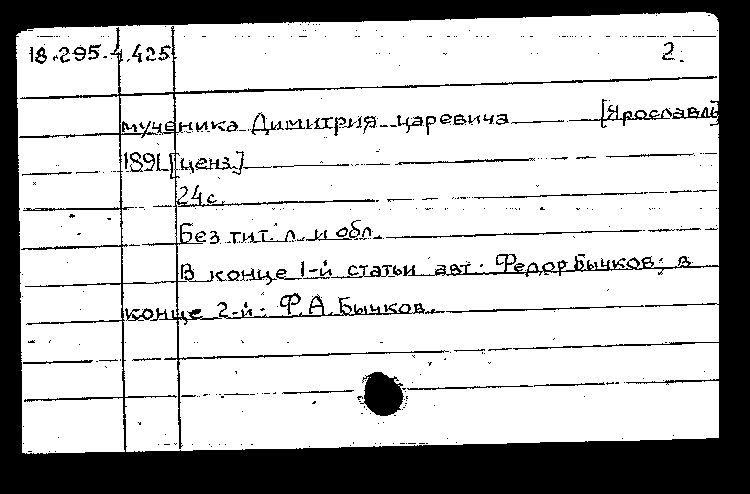 18.295.4.425 2.
мученика Димитрия царевича [Ярославль]
1891 [ценз.]
24 с.
Без тит. л. и обл.
В конце 1-й статьи авт.: Федор Бычков; в
конце 2-й: Ф. А. Бычков.